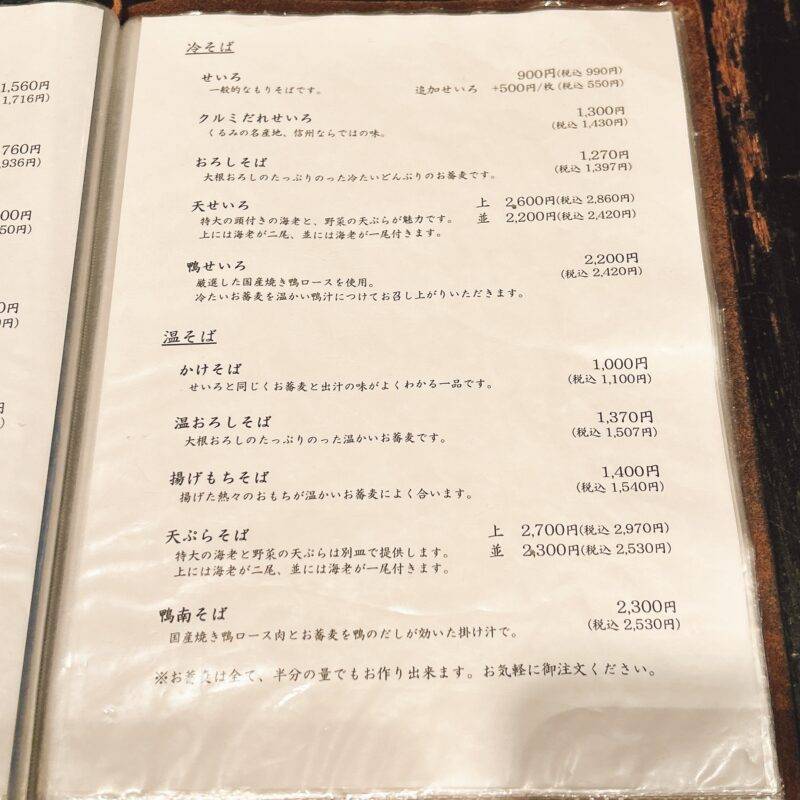 1,560円
1,716円)
760円
,936円)
00円
50円)
0円
円)
円
)
冷そば
せいろ 900円(税込 990円)
一般的なもりそばです。 追加せいろ +500円/枚 (税込 550円)
クルミだれせいろ 1,300円
くるみの名産地、信州ならではの味。 (税込 1,430円)
おろしそば 1,270円
大根おろしのたっぷりのった冷たいどんぶりのお蕎麦です。 (税込 1,397円)
天せいろ 上 2,600円(税込 2,860円)
特大の頭付きの海老と、野菜の天ぷらが魅力です。 並 2,200円(税込 2,420円)
上には海老が二尾、並には海老が一尾付きます。
鴨せいろ 2,200円
厳選した国産焼き鴨ロースを使用。 (税込 2,420円)
冷たいお蕎麦を温かい鴨汁につけてお召し上がりいただきます。
温そば
かけそば 1,000円
せいろと同じくお蕎麦と出汁の味がよくわかる一品です。 (税込 1,100円)
温おろしそば 1,370円
大根おろしのたっぷりのった温かいお蕎麦です。 (税込 1,507円)
揚げもちそば 1,400円
揚げた熱々のおもちが温かいお蕎麦によく合います。 (税込 1,540円)
天ぷらそば 上 2,700円(税込 2,970円)
特大の海老と野菜の天ぷらは別皿で提供します。 並 2,300円(税込 2,530円)
上には海老が二尾、並には海老が一尾付きます。
鴨南そば 2,300円
国産焼き鴨ロース肉とお蕎麦を鴨のだしが効いた掛け汁で。 (税込 2,530円)
※お蕎麦は全て、半分の量でもお作り出来ます。お気軽に御注文ください。